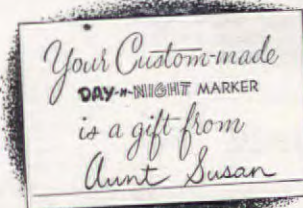 Your Custom-made
DAY-n-NIGHT MARKER
is a gift from
Aunt Susan